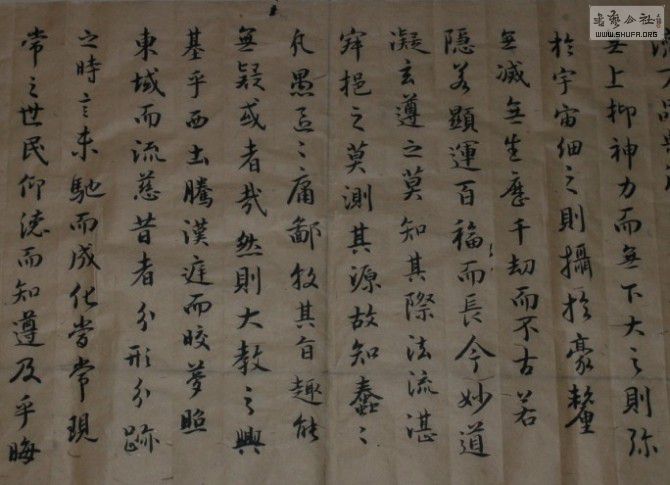 無上抑神力而無下大之則弥
於宇宙細之則攝於豪釐
無滅無生歷千劫而不古若
隱若顯運百福而長今妙道
凝玄遵之莫知其際法流湛
寂挹之莫測其源故知蠢〻
凡愚區〻庸鄙投其旨趣能
無疑或者哉然則大教之興
基乎西土騰漢庭而皎夢照
東域而流慈昔者分形分跡
之時言未馳而成化當常現
常之世民仰德而知遵及乎晦
書藝公社
WWW.SHUFA.ORG